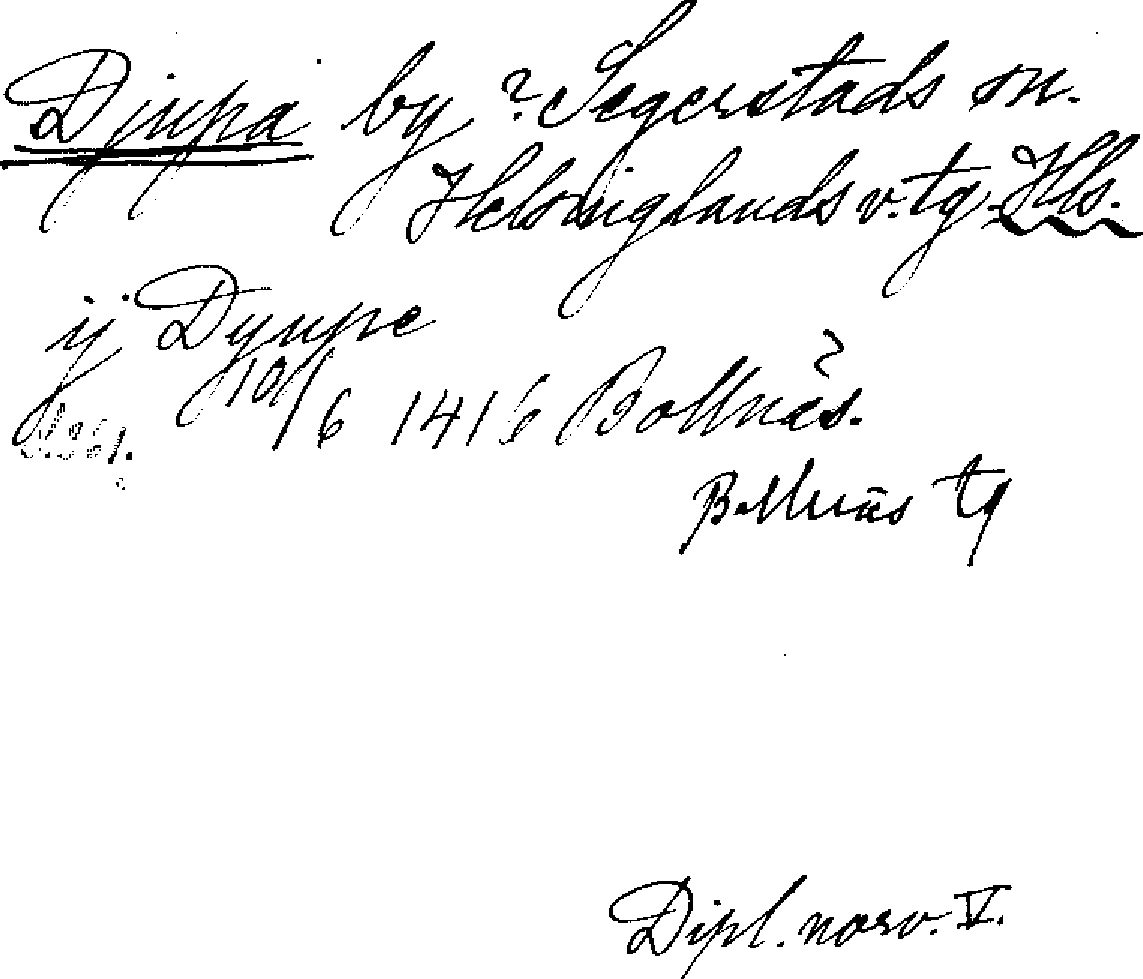 Djupa by ? Segerstads sn.
Helsinglands v. tg. Hls.
ij Dyupe
10/6 1416 Bollnäs.
s. 361.
Bollnäs tg
Dipl. norv. V.